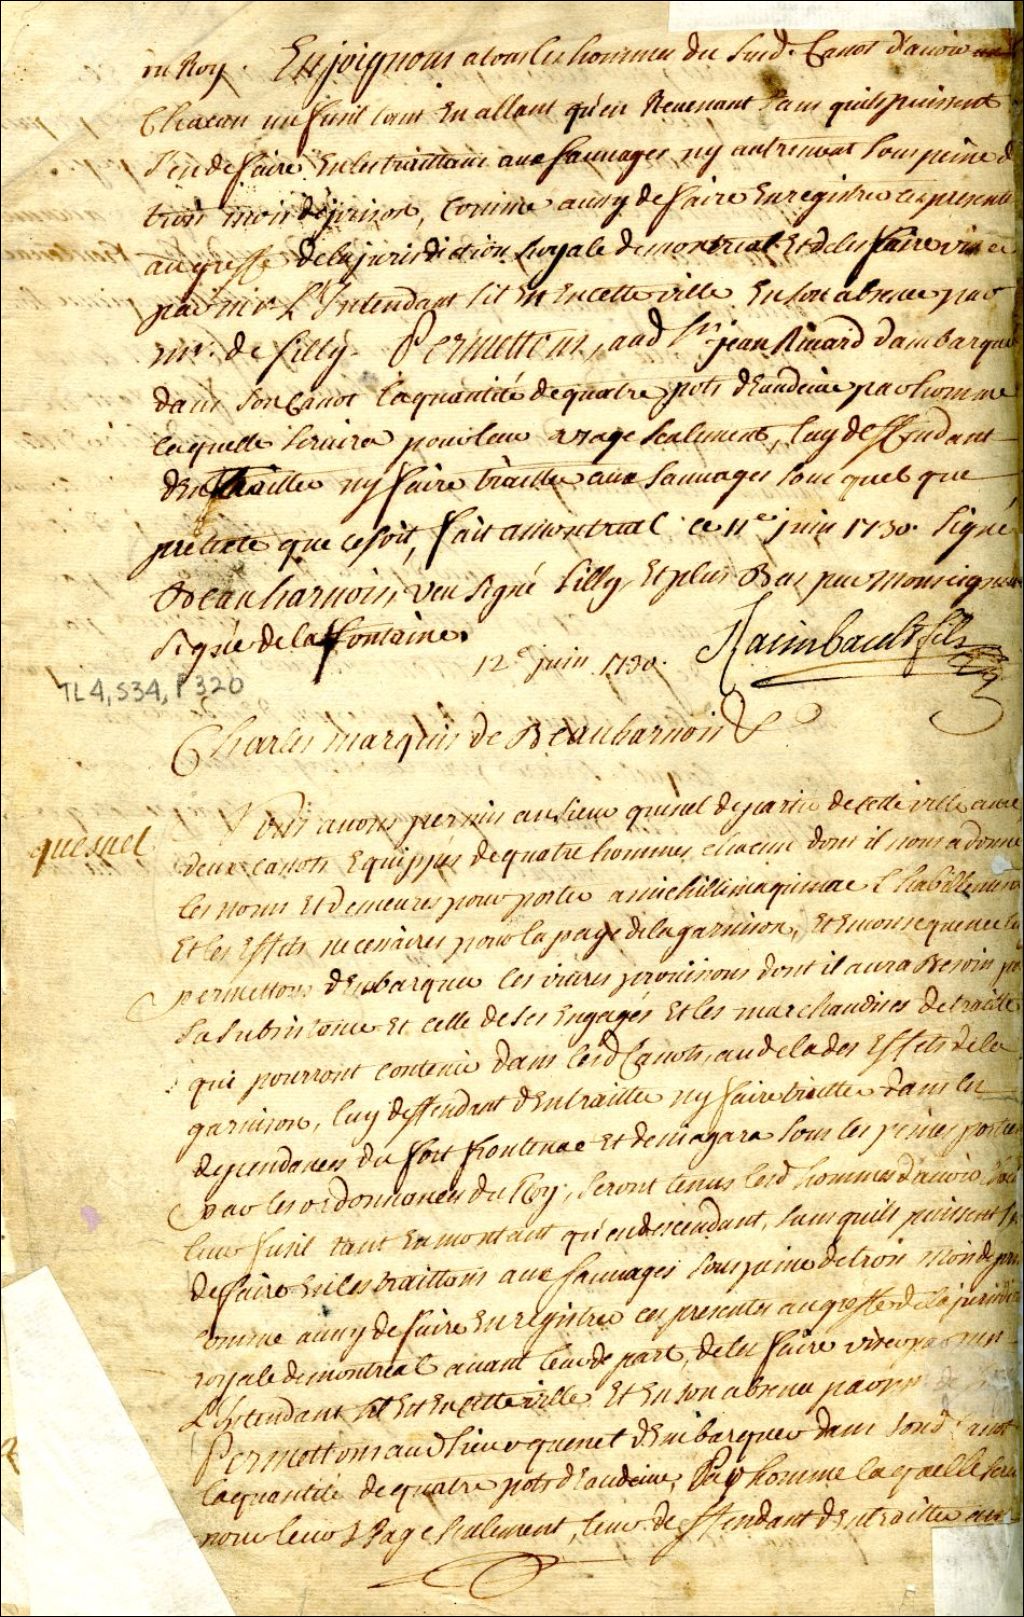 du Roy. Enjoignons a tous les hommes du Susd. Canot d'avoir
Chacun un fusil tant En allant qu'en Revenant sans quils puissent
s'en deffaire En les traittant aux sauvages ny autrement sous peine d
trois mois de prison, Comme aussy de faire Enregistrer ces presentes
au greffe de la jurisdiction Royale de montreal Et de les faire viser
par mr. L'Intendant s'il Est En cette ville En son absence par
mr. de silly. Permettons, aud sr. jean Rivard d'ambarque
dans son Canot la quantité de quatre pots d'Eaudevie par homme
laquelle servira pour leur usage seulement, luy deffendant
d'En traitter ny faire traitter aux sauvages sous quelque
pretexte que ce soit, fait a montreal ce 11e juin 1730. signé
Beauharnois, veu signé silly, Et plus Bas par Monseigneur
signé de la fontaine.
12e juin 1730. Raimbault fils
TL4, S34, P320
Charles marquis de Beauharnois &
quesnel
Nous avons permis au sieur quesnel de partir de cette ville avec
deux canots Equippés de quatre hommes chacun dont il nous a donné
les noms Et demeures pour porter a michillimaquinac L'habillement
Et les Effets necessaires pour la paye de la garnison, Et En consequence
permettons d'Enbarquer les vivres provisions dont il aura Besoin
sa subsistance Et celle de ses Engagés Et les marchandises de traitte
qui pourront contenir dans lesd Canots, audela des Effets de la
garnison, luy deffendant d'En traitter ny faire traitter dans les
dependances du fort frontenac Et de niagara sous les peines portées
par les ordonnances du Roy, seront tenus lesd hommes d'avoir
leur fusil tant En montant qu'en descendant, sans quils puissent
deffaire En les traittant aux sauvages sous peine de trois mois de
comme aussy de faire Enregistrer ces presentes au greffe de la
royale de montreal avant leur depart, de les faire viser par mr
L'Intendant s'il Est En cette ville Et En son absence par mr
Permettons aud sieur quesnel d'Embarquer dans sond Canot
la quantité de quatre pots d'Eaudevie, Par homme laquelle
pour leur Usage seulement, leur deffendant d'En traitter